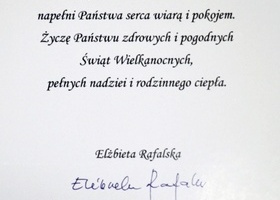 napełni Państwa serca wiarą i pokojem.
Życzę Państwu zdrowych i pogodnych
Świąt Wielkanocnych,
pełnych nadziei i rodzinnego ciepła.
Elżbieta Rafalska
Elżbieta Rafalska